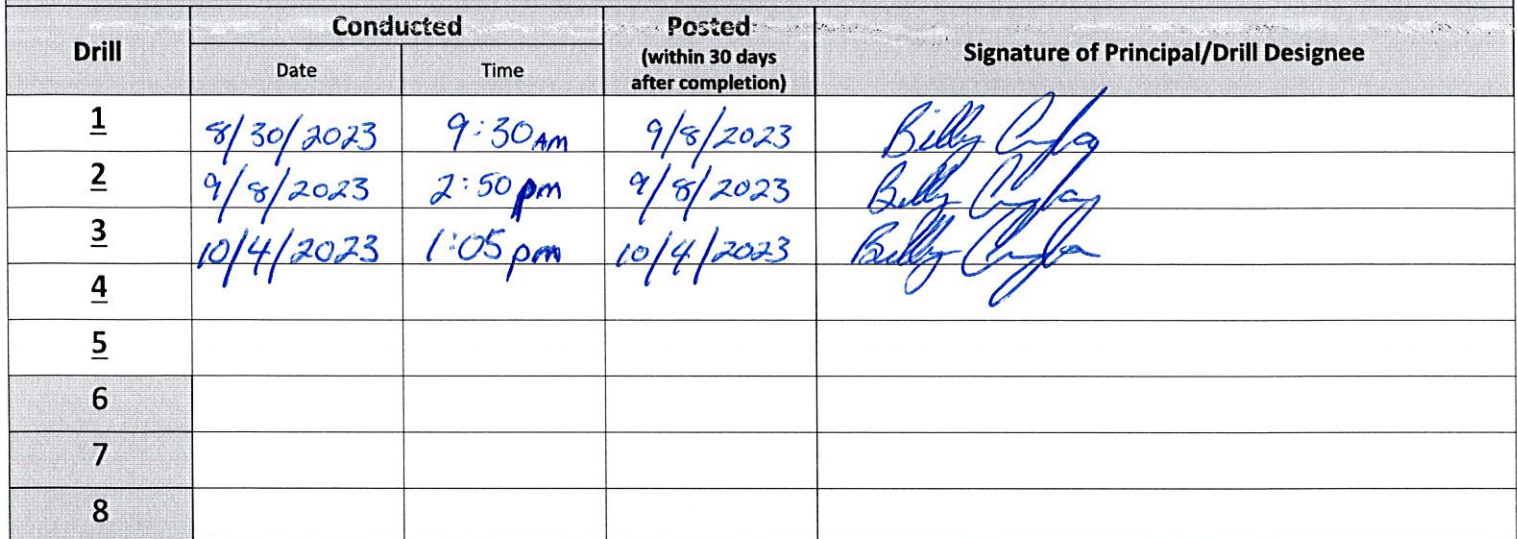 Drill Conducted Posted (within 30 days after completion) Signature of Principal/Drill Designee
Date Time
1 8/30/2023 9:30 AM 9/8/2023 Billy
2 9/8/2023 2:50 pm 9/8/2023 Billy
3 10/4/2023 1:05 pm 10/4/2023 Billy
4
5
6
7
8